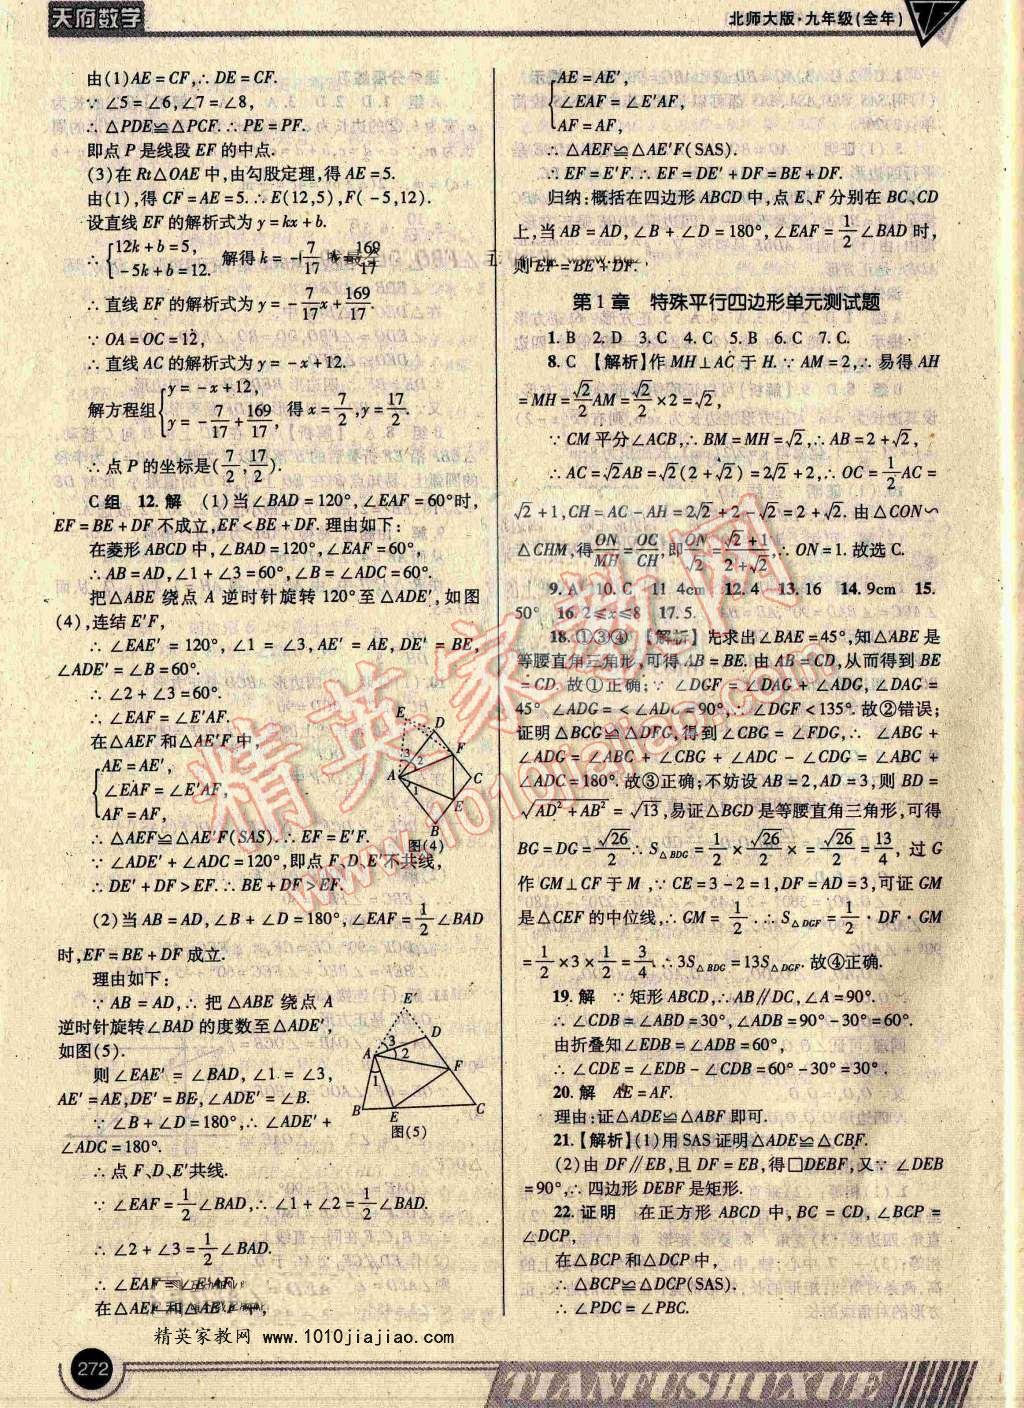 天府数学
北师大版·九年级(全年)
由(1)AE=CF,∴DE=CF.
∵∠5=∠6,∠7=∠8,
∴△PDE≌△PCF.∴PE=PF.
即点P是线段EF的中点.
(3)在Rt△OAE中,由勾股定理,得AE=5.
由(1),得CF=AE=5.∴E(12,5),F(-5,12).
设直线EF的解析式为y=kx+b.
∴{12k+b=5, -5k+b=12. 解得k=-7/17, 169/17
∴直线EF的解析式为y=-7/17x+169/17.
∵OA=OC=12,
∴直线AC的解析式为y=-x+12.
解方程组{y=-x+12, y=-7/17+169/17, 得x=7/2,y=17/2.
∴点P的坐标是(7/2,17/2).
C组 12.解 (1)当∠BAD=120°,∠EAF=60°时,
EF=BE+DF不成立,EF<BE+DF.理由如下:
在菱形ABCD中,∠BAD=120°,∠EAF=60°,
∴AB=AD,∠1+∠3=60°,∠B=∠ADC=60°.
把△ABE绕点A逆时针旋转120°至△ADE′,如图
(4),连结E′F,
∴∠EAE′=120°,∠1=∠3,AE′=AE,DE′=BE,
∠ADE′=∠B=60°.
∴∠2+∠3=60°.
∴∠EAF=∠E′AF.
在△AEF和△AE′F中,
{AE=AE′,
∠EAF=∠E′AF,
AF=AF,
∴△AEF≌△AE′F(SAS).∴EF=E′F.
图(4)
∵∠ADE′+∠ADC=120°,即点F、D、E′不共线,
∴DE′+DF>EF.∴BE+DF>EF.
(2)当AB=AD,∠B+∠D=180°,∠EAF=1/2∠BAD
时,EF=BE+DF成立.
理由如下:
∵AB=AD,∴把△ABE绕点A
逆时针旋转∠BAD的度数至△ADE′,
如图(5).
则∠EAE′=∠BAD,∠1=∠3,
AE′=AE,DE′=BE,∠ADE′=∠B.
∵∠B+∠D=180°,∴∠ADE′+
∠ADC=180°.
图(5)
∴点F、D、E′共线.
∵∠EAF=1/2∠BAD,∴∠1+∠2=1/2∠BAD.
∴∠2+∠3=1/2∠BAD.
∴∠EAF=∠E′AF.
在△AEF和△AE′F中,
{AE=AE′,
∠EAF=∠E′AF,
AF=AF,
∴△AEF≌△AE′F(SAS).
∴EF=E′F.∴EF=DE′+DF=BE+DF.
归纳:概括在四边形ABCD中,点E、F分别在BC、CD
上,当AB=AD,∠B+∠D=180°,∠EAF=1/2∠BAD时,
则EF=BE+DF.
第1章 特殊平行四边形单元测试题
1.B 2.D 3.C 4.C 5.B 6.C 7.C.
8.C 【解析】作MH⊥AC于H.∵AM=2,∴易得AH
=MH=√2/2AM=√2/2×2=√2,
∵CM平分∠ACB,∴BM=MH=√2,∴AB=2+√2,
∴AC=√2AB=√2(2+√2)=2√2+2,∴OC=1/2AC=
√2+1,CH=AC-AH=2√2+2-√2=2+√2.由△CON∽
△CHM,得ON/MH=OC/CH,即ON/√2=(√2+1)/(2+√2),∴ON=1.故选C.
9.A 10.C 11.4cm 12.4 13.16 14.9cm 15.
50° 16.2≤x≤8 17.5.
18.①③④ 【解析】先求出∠BAE=45°,知△ABE是
等腰直角三角形,可得AB=BE.由AB=CD,从而得到BE
=CD.故①正确;∵∠DGF=∠DAG+∠ADG,∠DAG=
45°,∠ADG=<∠ADC=90°,∴∠DGF<135°.故②错误;
证明△BCG≌△DFG,得到∠CBG=∠FDG,∴∠ABG+
∠ADG=∠ABC+∠CBG+∠ADC-∠CDG=∠ABC+
∠ADC=180°.故③正确;不妨设AB=2,AD=3,则BD=
√(AD²+AB²)=√13,易证△BGD是等腰直角三角形,可得
BG=DG=√26/2∴S△BDG=1/2×√26/2×=√26/2=13/4,过G
作GM⊥CF于M,∵CE=3-2=1,DF=AD=3,可证GM
是△CEF的中位线,∴GM=1/2.∴S△DGF=1/2·DF·GM
=1/2×3×1/2=3/4.∴3S△BDG=13S△DGF.故④正确.
19.解 ∵矩形ABCD,∴AB∥DC,∠A=90°.
∴∠CDB=∠ABD=30°,∠ADB=90°-30°=60°.
由折叠知∠EDB=∠ADB=60°,
∴∠CDE=∠EDB-∠CDB=60°-30°=30°.
20.解 AE=AF.
理由:证△ADE≌△ABF即可.
21.【解析】(1)用SAS证明△ADE≌△CBF.
(2)由DF∥EB,且DF=EB,得□DEBF,又∵∠DEB
=90°,∴四边形DEBF是矩形.
22.证明 在正方形ABCD中,BC=CD,∠BCP=
∠DCP,
在△BCP和△DCP中,
∴△BCP≌△DCP(SAS).
∴∠PDC=∠PBC.
精英家教网
www.1010jiajiao.com
精英家教网 www.1010jiajiao.com
272
TIANFUSHUXUE